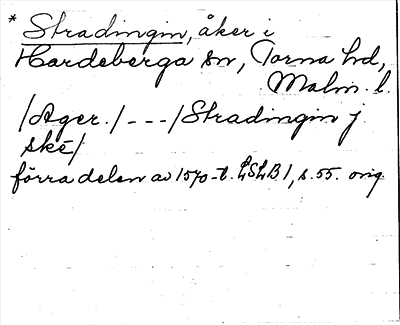 * Stradingin, åker i
Hardeberga sn, Torna hd,
Malm. l.
/Ager./ - - - /Stradingin j
ske/
förra delen av 1570-t. LSLB 1, s. 55. orig